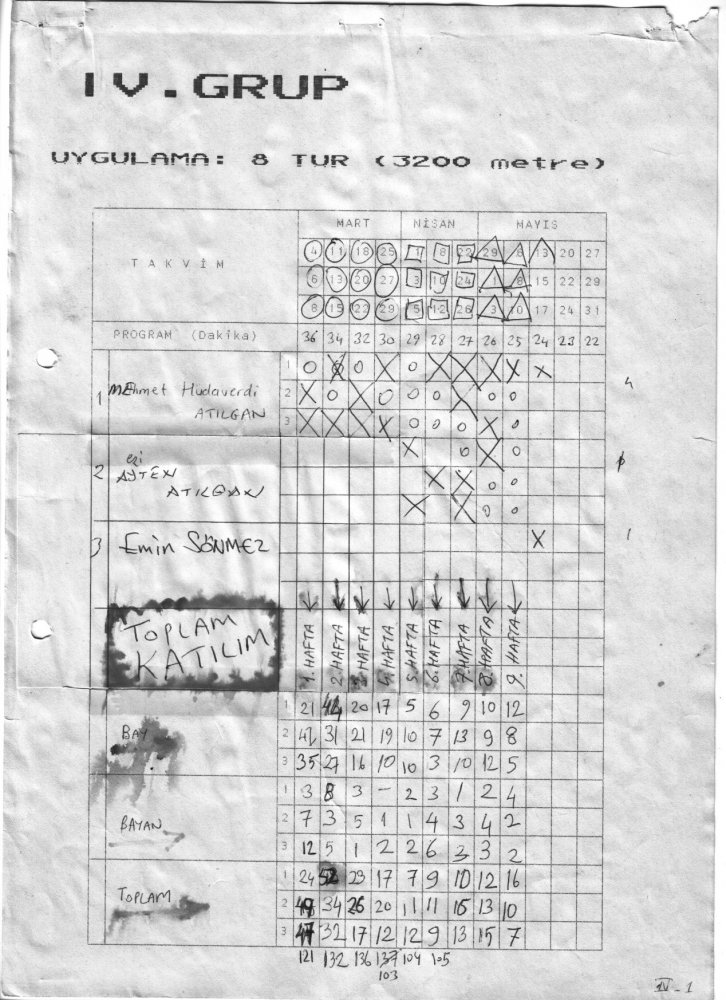 IV.GRUP
UYGULAMA: 8 TUR (3200 metre)
TAKVİM MART NİSAN MAYIS
4 11 18 25 1 8 22 29 6 13 20 27
6 13 20 27 3 10 24 1 8 15 22 29
8 15 22 29 5 12 26 3 10 17 24 31
PROGRAM (Dakika) 36 34 32 30 29 28 27 26 25 24 23 22
1 Mehmet Hüdaverdi
ATILGAN
1 O X O X O X X X X X
2 X O X O O O X O O
3 X X X X O O O X O
4
2 eşi
AYTEN
ATILGAN
X O X O
X X O O
X X O O
3 Emin SÖNMEZ
X
1
TOPLAM
KATILIM
1. HAFTA
2. HAFTA
3. HAFTA
4. HAFTA
5. HAFTA
6. HAFTA
7. HAFTA
8. HAFTA
9. HAFTA
BAY
1 21 44 20 17 5 6 9 10 12
2 42 31 21 19 10 7 13 9 8
3 35 27 16 10 10 3 10 12 5
BAYAN
1 3 8 3 - 2 3 1 2 4
2 7 3 5 1 1 4 3 4 2
3 12 5 1 2 2 6 3 3 2
TOPLAM
1 24 52 23 17 7 9 10 12 16
2 49 34 26 20 11 11 16 13 10
3 47 32 17 12 12 9 13 15 7
121 132 136 137 104 105
103
IV-1